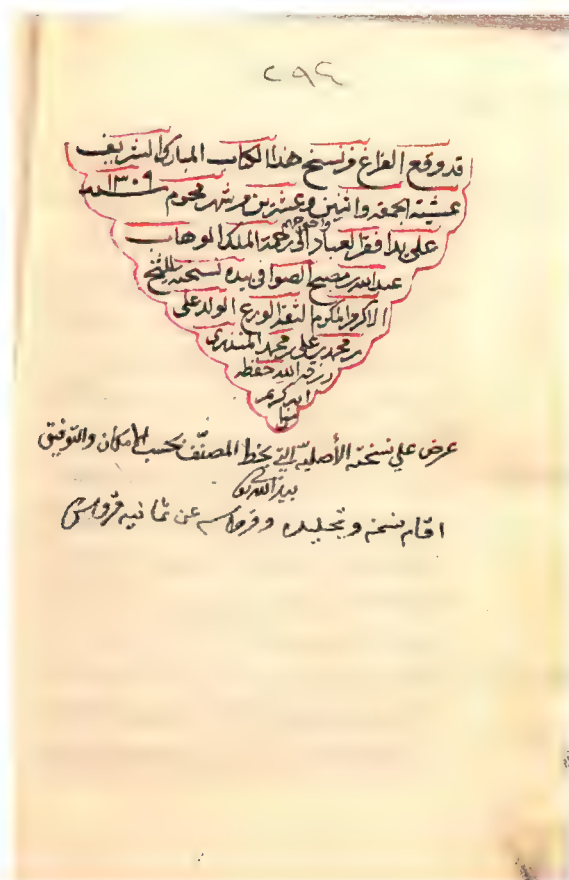 ٢٩٤
قد وقع الفراغ من نسخ هذا الكتاب المبارك الشريف
عشية الجمعة واثنين وعشرين من شهر محرم سنة ١٣٠٩
على يد افقر العباد واحوجهم الى رحمة الملك الوهاب
عبد الله بن مصبح الصوافي بيده نسخته للشيخ
الاكرم المكرم الثقة الورع الولد علي
بن محمد بن علي بن محمد المنذري
رزقه الله حفظه
انه كريم
عرض على نسخته الأصلية التي بخط المصنّف بحسب الامكان والتوفيق
بيد الله
اقام نسخه وتجليده وقرطاسه عن ثمانية قروش